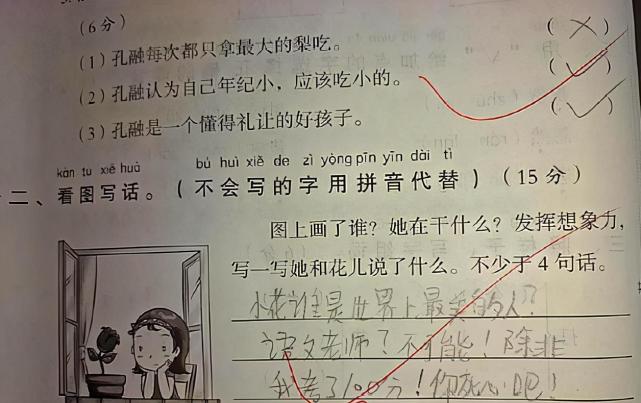 （6分）
（1）孔融每次都只拿最大的梨吃。（×）
（2）孔融认为自己年纪小，应该吃小的。（✓）
（3）孔融是一个懂得礼让的好孩子。（✓）
kàn tú xiě huà bú huì xiě de zì yòng pīn yīn dài tì
十二、看图写话。（不会写的字用拼音代替）（15分）
图上画了谁？她在干什么？发挥想象力，
写一写她和花儿说了什么。不少于4句话。
小花谁是世界上最美的人？
语文老师？不可能！除非
我考了100分！你死心吧！